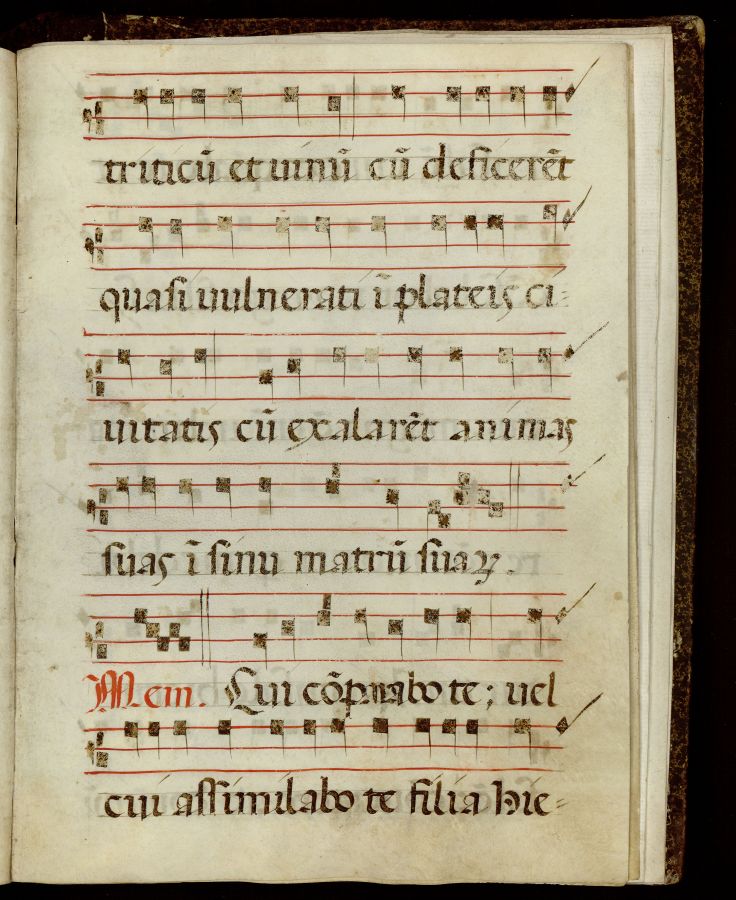 triticū et uinū cū deficerēt
quasi uulnerati ī plateis ci-
uitatis cū exalarēt animas
suas ī sinu matrū suaꝝ.
Mem. Cui cōparabo te; uel
cui assimilabo te filia hie-